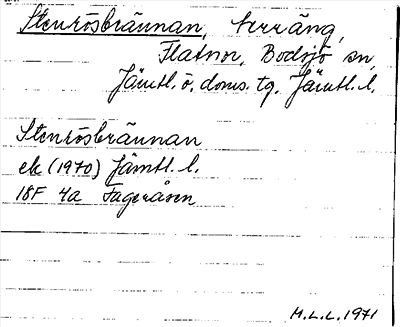 Stenrösbrännan, terräng,
Flatnor, Bodsjö sn,
Jämtl. ö. doms. tg. Jämtl. l.
Stenrösbrännan
ek (1970) Jämtl. l.
18F 4a Fageråsen
M.L.L. 1971